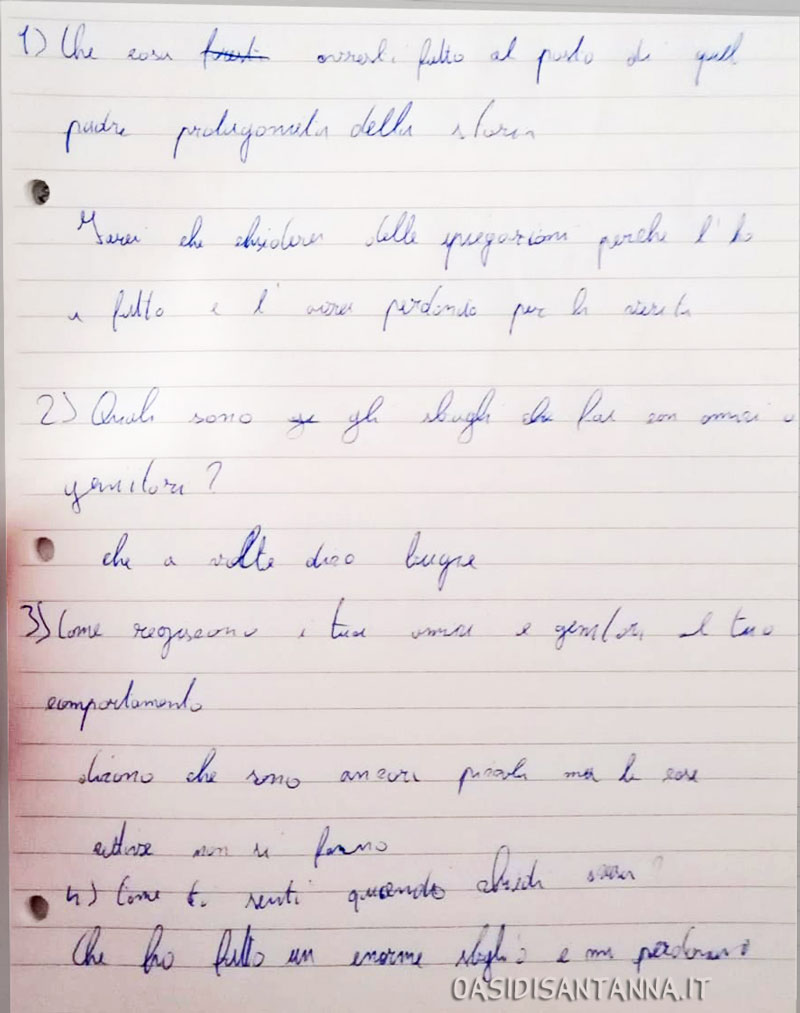 1) Che cosa faresti avresti fatto al posto di quel
padre protagonista della storia
che chiederei delle spiegazioni perche l'ha
fatto e l'avrei perdonato per la
2) Quali sono gli sbagli che fai con amici o
genitori?
che a volte dico bugie
3) Come regiscono i tuoi amici e genitori al tuo
comportamento
dicono che sono ancora piccola ma le cose
cattive non si fanno
4) Come ti senti quando chiedi scusa?
Che ho fatto un enorme sbaglio e mi perdonano
OASIDISANTANNA.IT